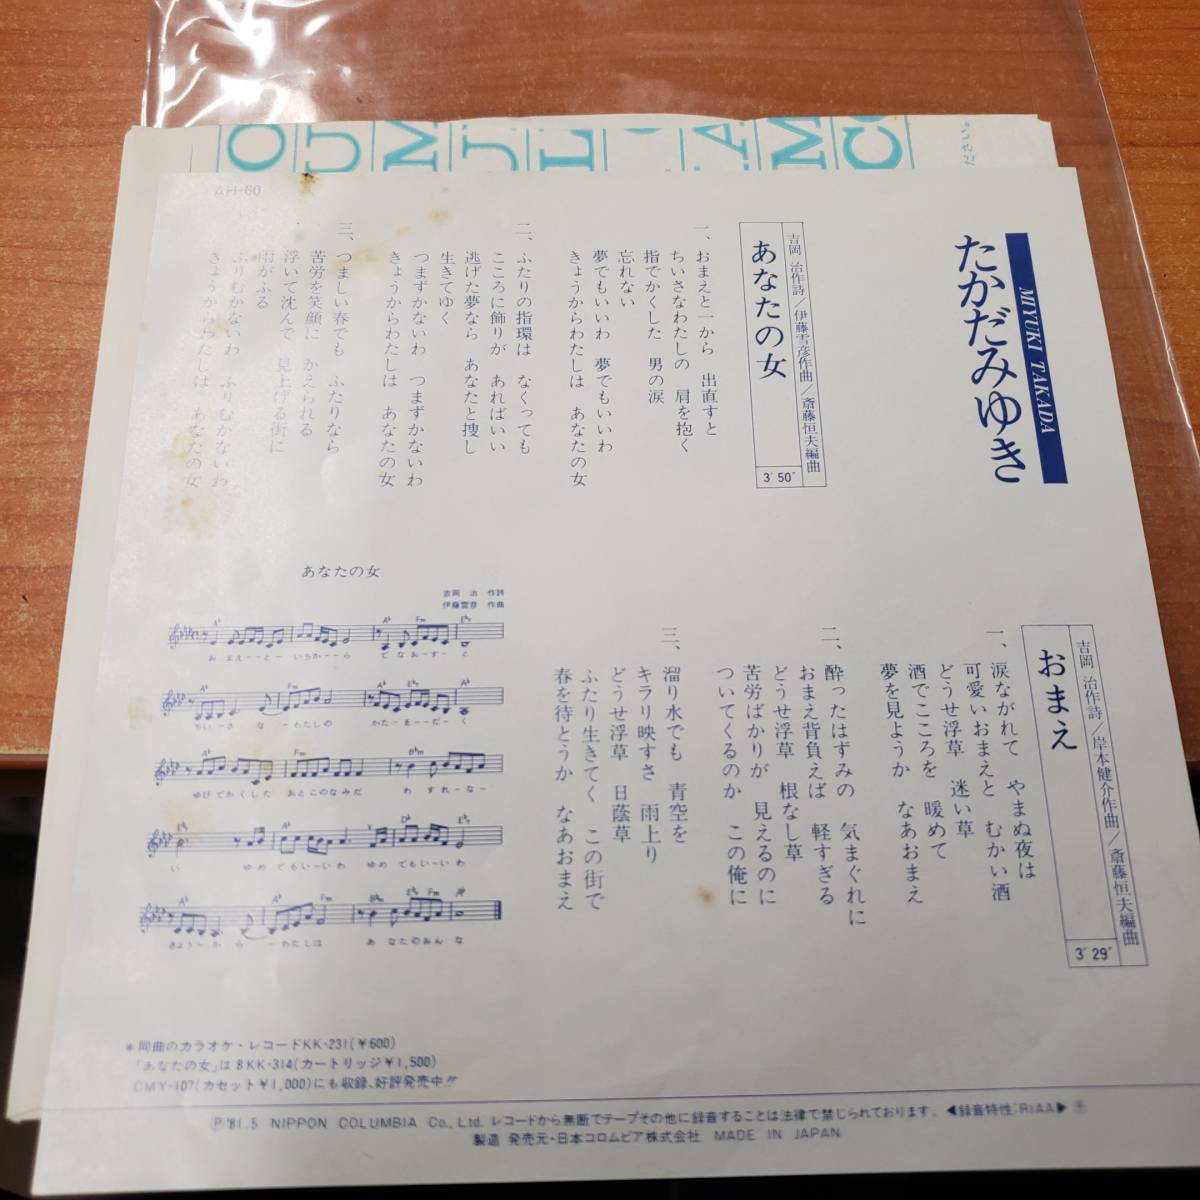 AH-60
MIYUKI TAKADA
たかだみゆき
吉岡 治作詩/伊藤雪彦作曲/斎藤恒夫編曲
あなたの女
3′50″
一、おまえと一から 出直すと
ちいさなわたしの 肩を抱く
指でかくした 男の涙
忘れない
夢でもいいわ 夢でもいいわ
きょうからわたしは あなたの女
二、ふたりの指環は なくっても
こころに飾りが あればいい
逃げた夢なら あなたと捜し
生きてゆく
つまずかないわ つまずかないわ
きょうからわたしは あなたの女
三、つましい春でも ふたりなら
苦労を笑顔に かえられる
浮いて沈んで 見上げる街に
雨がふる
ふりむかないわ ふりむかないわ
きょうからわたしは あなたの女
吉岡 治作詩/岸本健介作曲/斎藤恒夫編曲
おまえ
3′29″
一、涙ながれて やまぬ夜は
可愛いおまえと むかい酒
どうせ浮草 迷い草
酒でこころを 暖めて
夢を見ようか なあおまえ
二、酔ったはずみの 気まぐれに
おまえ背負えば 軽すぎる
どうせ浮草 根なし草
苦労ばかりが 見えるのに
ついてくるのか この俺に
三、溜り水でも 青空を
キラリ映すさ 雨上り
どうせ浮草 日蔭草
ふたり生きてく この街で
春を待とうか なあおまえ
あなたの女
吉岡 治 作詩
伊藤雪彦 作曲
おまえーとー いちかーーら でなおーすーと
ちいーさ なーわたしの かたーをーーだーく
ゆびでかくした おとこのなみだ わすれーなー
い ゆめでもいーいわ ゆめでもいーいわ
きょうーから ーわたしは あなたのおんな
*同曲のカラオケ・レコードKK-231(¥600)
「あなたの女」は8KK-314(カートリッジ¥1,500)
CMY-107(カセット¥1,000)にも収録、好評発売中!!
Ⓟ'81.5 NIPPON COLUMBIA Co., Ltd. レコードから無断でテープその他に録音することは法律で禁じられております。◀録音特性:RIAA▶
製造 発売元・日本コロムビア株式会社 MADE IN JAPAN